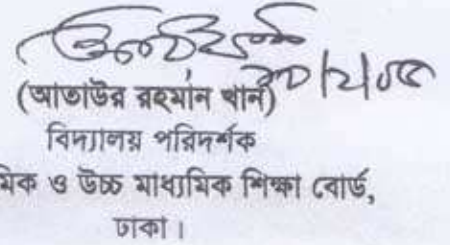 (আতাউর রহমান খান)
বিদ্যালয় পরিদর্শক
মিক ও উচ্চ মাধ্যমিক শিক্ষা বোর্ড,
ঢাকা।